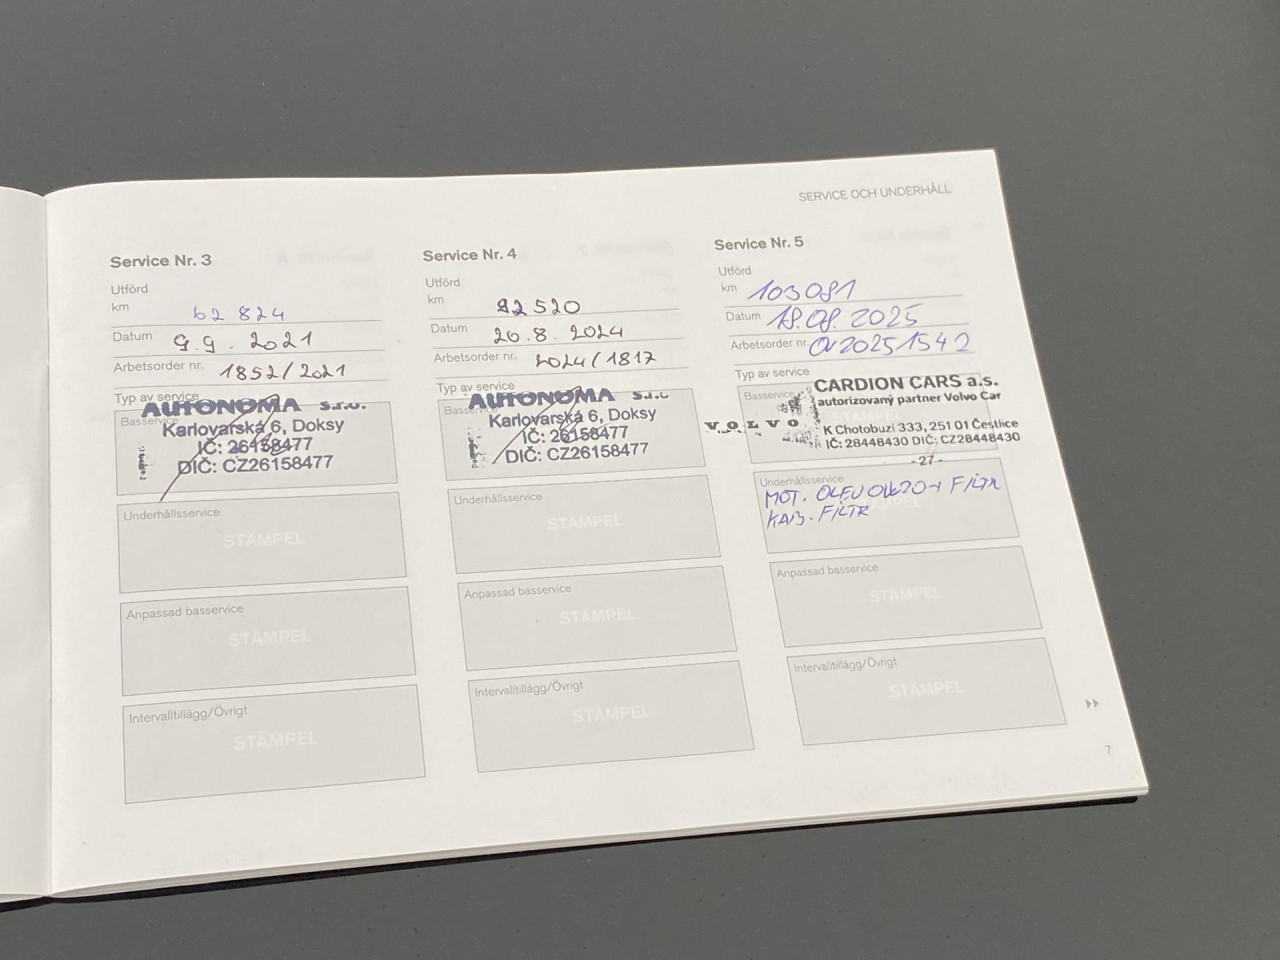 SERVICE OCH UNDERHÅLL
Service Nr. 3
Utförd
km 62 824
Datum 9.9.2021
Arbetsorder nr. 1852/2021
Typ av service
Basservice
AUTONOMA s.r.o.
Karlovarská 6, Doksy
IČ: 26158477
DIČ: CZ26158477
Underhållsservice
STÄMPEL
Anpassad basservice
STÄMPEL
Intervalltillägg/Övrigt
STÄMPEL
Service Nr. 4
Utförd
km 92 520
Datum 20.8.2024
Arbetsorder nr. 2024/1817
Typ av service
Basservice
AUTONOMA s.r.o.
Karlovarská 6, Doksy
IČ: 26158477
DIČ: CZ26158477
Underhållsservice
STÄMPEL
Anpassad basservice
STÄMPEL
Intervalltillägg/Övrigt
STÄMPEL
Service Nr. 5
Utförd
km 103 081
Datum 18.08.2025
Arbetsorder nr. 020251542
Typ av service
Basservice
CARDION CARS a.s.
autorizovaný partner Volvo Car
VOLVO
K Chotobuzi 333, 251 01 Čestlice
IČ: 28448430 DIČ: CZ28448430
-27-
Underhållsservice
MOT. OLEJ FILTR
KAB. FILTR
STÄMPEL
Anpassad basservice
STÄMPEL
Intervalltillägg/Övrigt
STÄMPEL
7